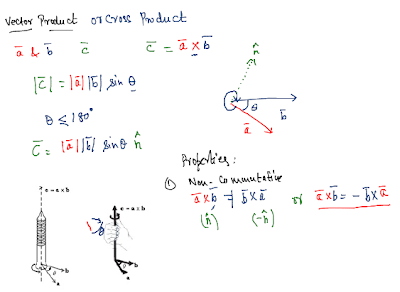 Vector Product or Cross Product
a̅ & b̅ c̅ c̅ = a̅ × b̅
|c̅| = |a̅| |b̅| sin θ
θ ≤ 180°
c̅ = |a̅| |b̅| sinθ n̂
n̂
θ
a̅
b̅
Properties:
① Non-Commutative
a̅×b̅ ≠ b̅×a̅ or a̅×b̅ = -b̅×a̅
(n̂) (-n̂)
c = a × b
b
a
c = a × b
b
a